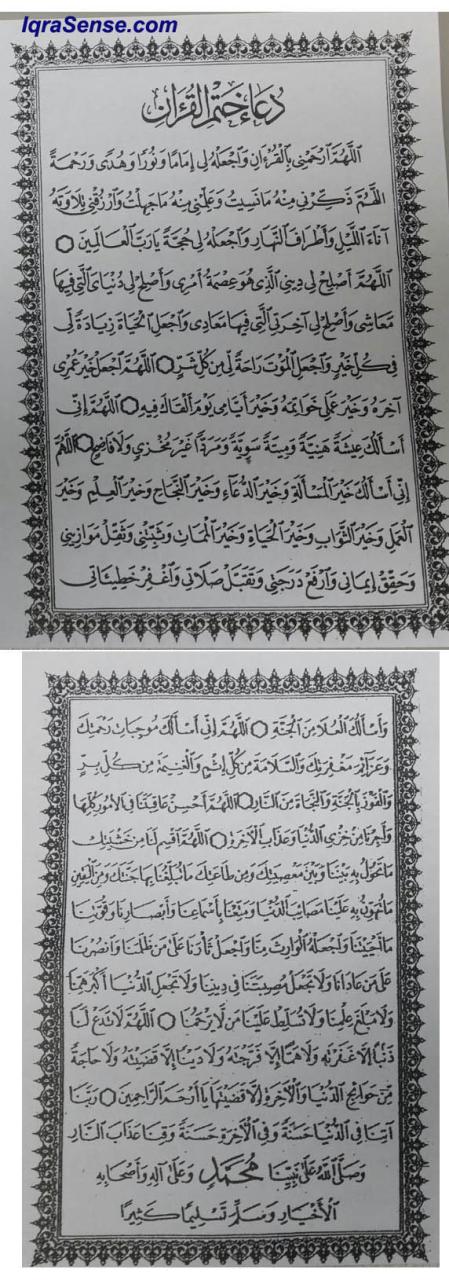 IqraSense.com
دُعَاءُ خَتْمِ الْقُرْآنِ
اللَّهُمَّ ارْحَمْنِي بِالْقُرْءَانِ وَاجْعَلْهُ لِي إِمَامًا وَنُورًا وَهُدًى وَرَحْمَةً
اللَّهُمَّ ذَكِّرْنِي مِنْهُ مَا نَسِيتُ وَعَلِّمْنِي مِنْهُ مَا جَهِلْتُ وَارْزُقْنِي تِلَاوَتَهُ
آنَاءَ اللَّيْلِ وَأَطْرَافَ النَّهَارِ وَاجْعَلْهُ لِي حُجَّةً يَا رَبَّ الْعَالَمِينَ ○
اللَّهُمَّ أَصْلِحْ لِي دِينِي الَّذِي هُوَ عِصْمَةُ أَمْرِي وَأَصْلِحْ لِي دُنْيَايَ الَّتِي فِيهَا
مَعَاشِي وَأَصْلِحْ لِي آخِرَتِي الَّتِي فِيهَا مَعَادِي وَاجْعَلِ الْحَيَاةَ زِيَادَةً لِي
فِي كُلِّ خَيْرٍ وَاجْعَلِ الْمَوْتَ رَاحَةً لِي مِنْ كُلِّ شَرٍّ ○ اللَّهُمَّ اجْعَلْ خَيْرَ عُمْرِي
آخِرَهُ وَخَيْرَ عَمَلِي خَوَاتِمَهُ وَخَيْرَ أَيَّامِي يَوْمَ أَلْقَاكَ فِيهِ ○ اللَّهُمَّ إِنِّي
أَسْأَلُكَ عِيشَةً هَنِيَّةً وَمِيتَةً سَوِيَّةً وَمَرَدًّا غَيْرَ مُخْزِي وَلَا فَاضِحٍ ○ اللَّهُمَّ
إِنِّي أَسْأَلُكَ خَيْرَ الْمَسْأَلَةِ وَخَيْرَ الدُّعَاءِ وَخَيْرَ النَّجَاحِ وَخَيْرَ الْعِلْمِ وَخَيْرَ
الْعَمَلِ وَخَيْرَ الثَّوَابِ وَخَيْرَ الْحَيَاةِ وَخَيْرَ الْمَمَاتِ وَثَبِّتْنِي وَثَقِّلْ مَوَازِينِي
وَحَقِّقْ إِيمَانِي وَارْفَعْ دَرَجَتِي وَتَقَبَّلْ صَلَاتِي وَاغْفِرْ خَطِيئَاتِي
وَأَسْأَلُكَ الْعُلَا مِنَ الْجَنَّةِ ○ اللَّهُمَّ إِنِّي أَسْأَلُكَ مُوجِبَاتِ رَحْمَتِكَ
وَعَزَائِمَ مَغْفِرَتِكَ وَالسَّلَامَةَ مِنْ كُلِّ إِثْمٍ وَالْغَنِيمَةَ مِنْ كُلِّ بِرٍّ
وَالْفَوْزَ بِالْجَنَّةِ وَالنَّجَاةَ مِنَ النَّارِ ○ اللَّهُمَّ أَحْسِنْ عَاقِبَتَنَا فِي الْأُمُورِ كُلِّهَا
وَأَجِرْنَا مِنْ خِزْيِ الدُّنْيَا وَعَذَابِ الْآخِرَةِ ○ اللَّهُمَّ اقْسِمْ لَنَا مِنْ خَشْيَتِكَ
مَا تَحُولُ بِهِ بَيْنَنَا وَبَيْنَ مَعْصِيَتِكَ وَمِنْ طَاعَتِكَ مَا تُبَلِّغُنَا بِهَا جَنَّتَكَ وَمِنَ الْيَقِينِ
مَا تُهَوِّنُ بِهِ عَلَيْنَا مَصَائِبَ الدُّنْيَا وَمَتِّعْنَا بِأَسْمَاعِنَا وَأَبْصَارِنَا وَقُوَّتِنَا
مَا أَحْيَيْتَنَا وَاجْعَلْهُ الْوَارِثَ مِنَّا وَاجْعَلْ ثَأْرَنَا عَلَى مَنْ ظَلَمَنَا وَانْصُرْنَا
عَلَى مَنْ عَادَانَا وَلَا تَجْعَلْ مُصِيبَتَنَا فِي دِينِنَا وَلَا تَجْعَلِ الدُّنْيَا أَكْبَرَ هَمِّنَا
وَلَا مَبْلَغَ عِلْمِنَا وَلَا تُسَلِّطْ عَلَيْنَا مَنْ لَا يَرْحَمُنَا ○ اللَّهُمَّ لَا تَدَعْ لَنَا
ذَنْبًا إِلَّا غَفَرْتَهُ وَلَا هَمًّا إِلَّا فَرَّجْتَهُ وَلَا دَيْنًا إِلَّا قَضَيْتَهُ وَلَا حَاجَةً
مِنْ حَوَائِجِ الدُّنْيَا وَالْآخِرَةِ إِلَّا قَضَيْتَهَا يَا أَرْحَمَ الرَّاحِمِينَ ○ رَبَّنَا
آتِنَا فِي الدُّنْيَا حَسَنَةً وَفِي الْآخِرَةِ حَسَنَةً وَقِنَا عَذَابَ النَّارِ
وَصَلَّى اللَّهُ عَلَى نَبِيِّنَا مُحَمَّدٍ وَعَلَى آلِهِ وَأَصْحَابِهِ
الْأَخْيَارِ وَسَلَّمَ تَسْلِيمًا كَثِيرًا